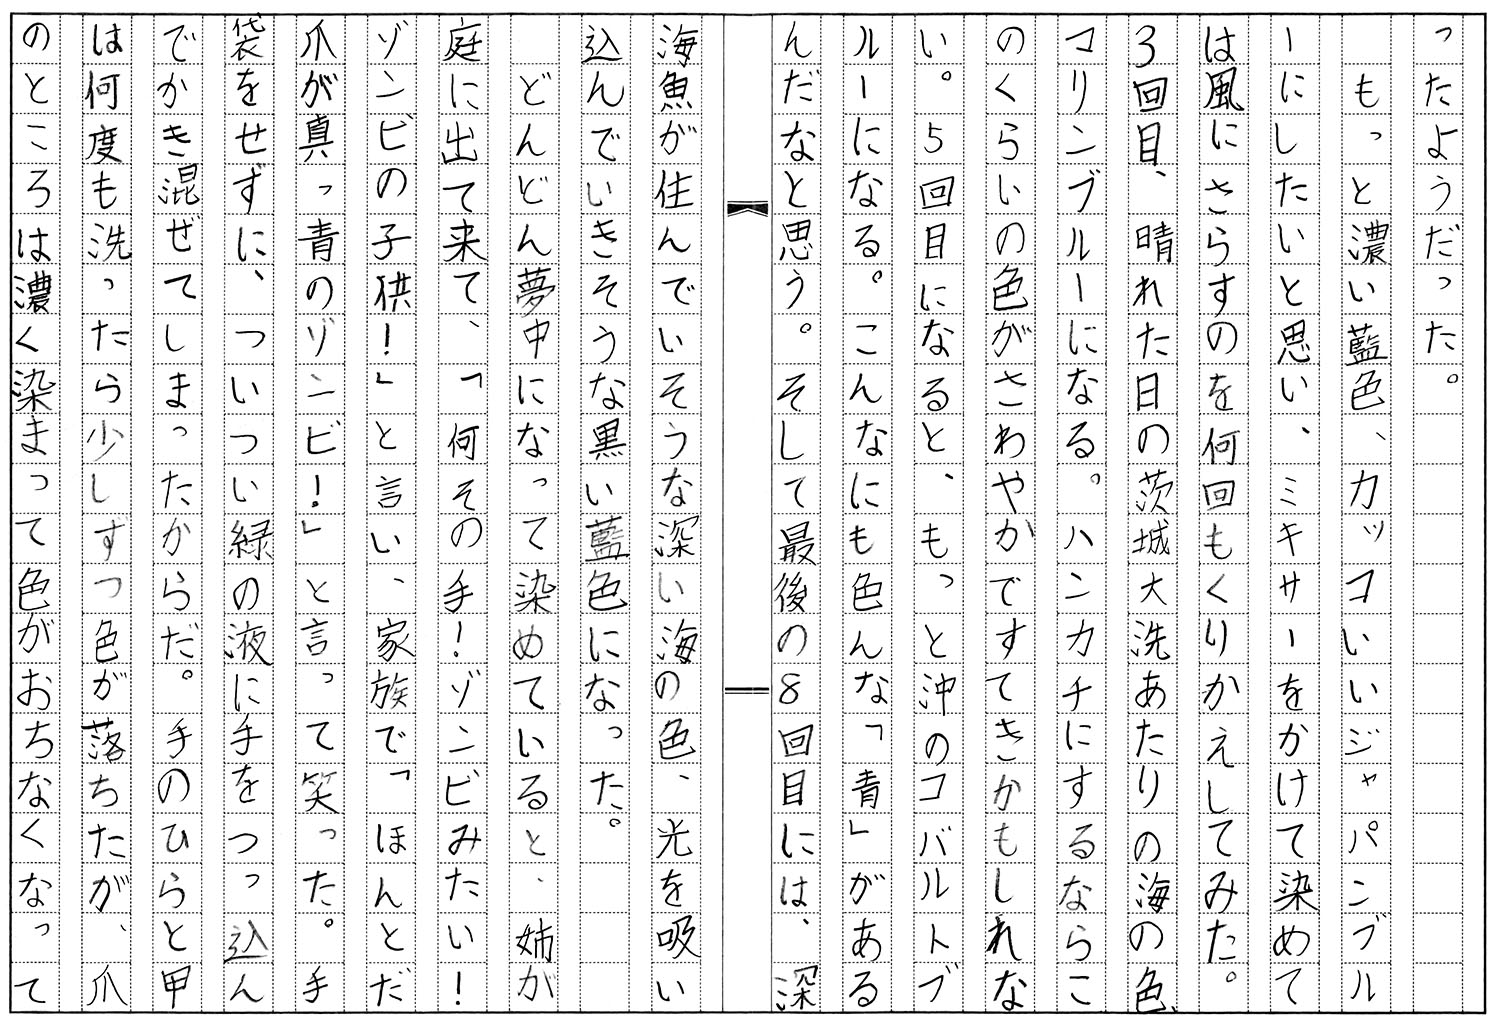 ったようだった。
　もっと濃い藍色、カッコいいジャパンブル
ーにしたいと思い、ミキサーをかけて染めて
は風にさらすのを何回もくりかえしてみた。
３回目、晴れた日の茨城大洗あたりの海の色、
マリンブルーになる。ハンカチにするならこ
のくらいの色がさわやかですてきかもしれな
い。５回目になると、もっと沖のコバルトブ
ルーになる。こんなにも色んな「青」がある
んだなと思う。そして最後の８回目には、深
海魚が住んでいそうな深い海の色、光を吸い
込んでいきそうな黒い藍色になった。
　どんどん夢中になって染めていると、姉が
庭に出て来て、「何その手！ゾンビみたい！
ゾンビの子供！」と言い、家族で「ほんとだ
爪が真っ青のゾンビ！」と言って笑った。手
袋をせずに、ついつい緑の液に手をつっ込ん
でかき混ぜてしまったからだ。手のひらと甲
は何度も洗ったら少しずつ色が落ちたが、爪
のところは濃く染まって色がおちなくなって